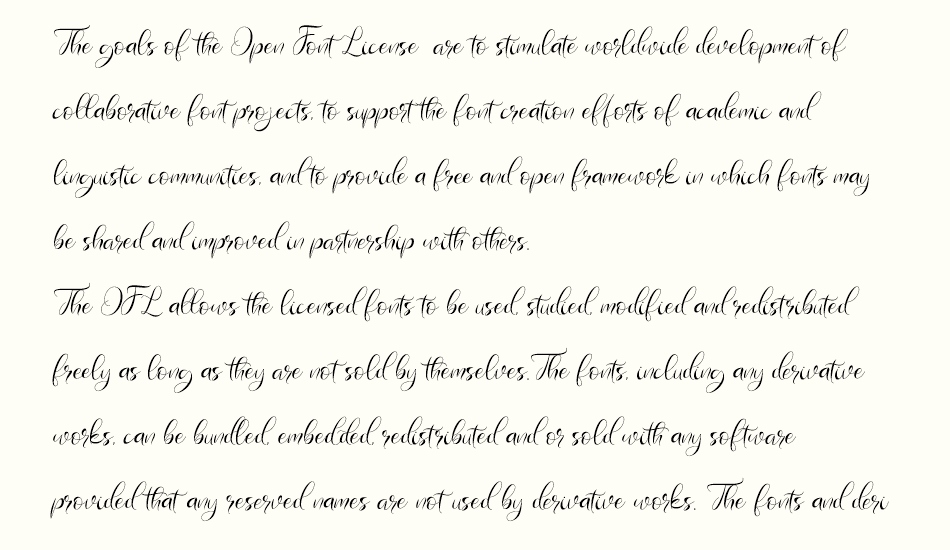 The goals of the Open Font License are to stimulate worldwide development of
collaborative font projects, to support the font creation efforts of academic and
linguistic communities, and to provide a free and open framework in which fonts may
be shared and improved in partnership with others.
The OFL allows the licensed fonts to be used, studied, modified and redistributed
freely as long as they are not sold by themselves. The fonts, including any derivative
works, can be bundled, embedded, redistributed and or sold with any software
provided that any reserved names are not used by derivative works. The fonts and deri